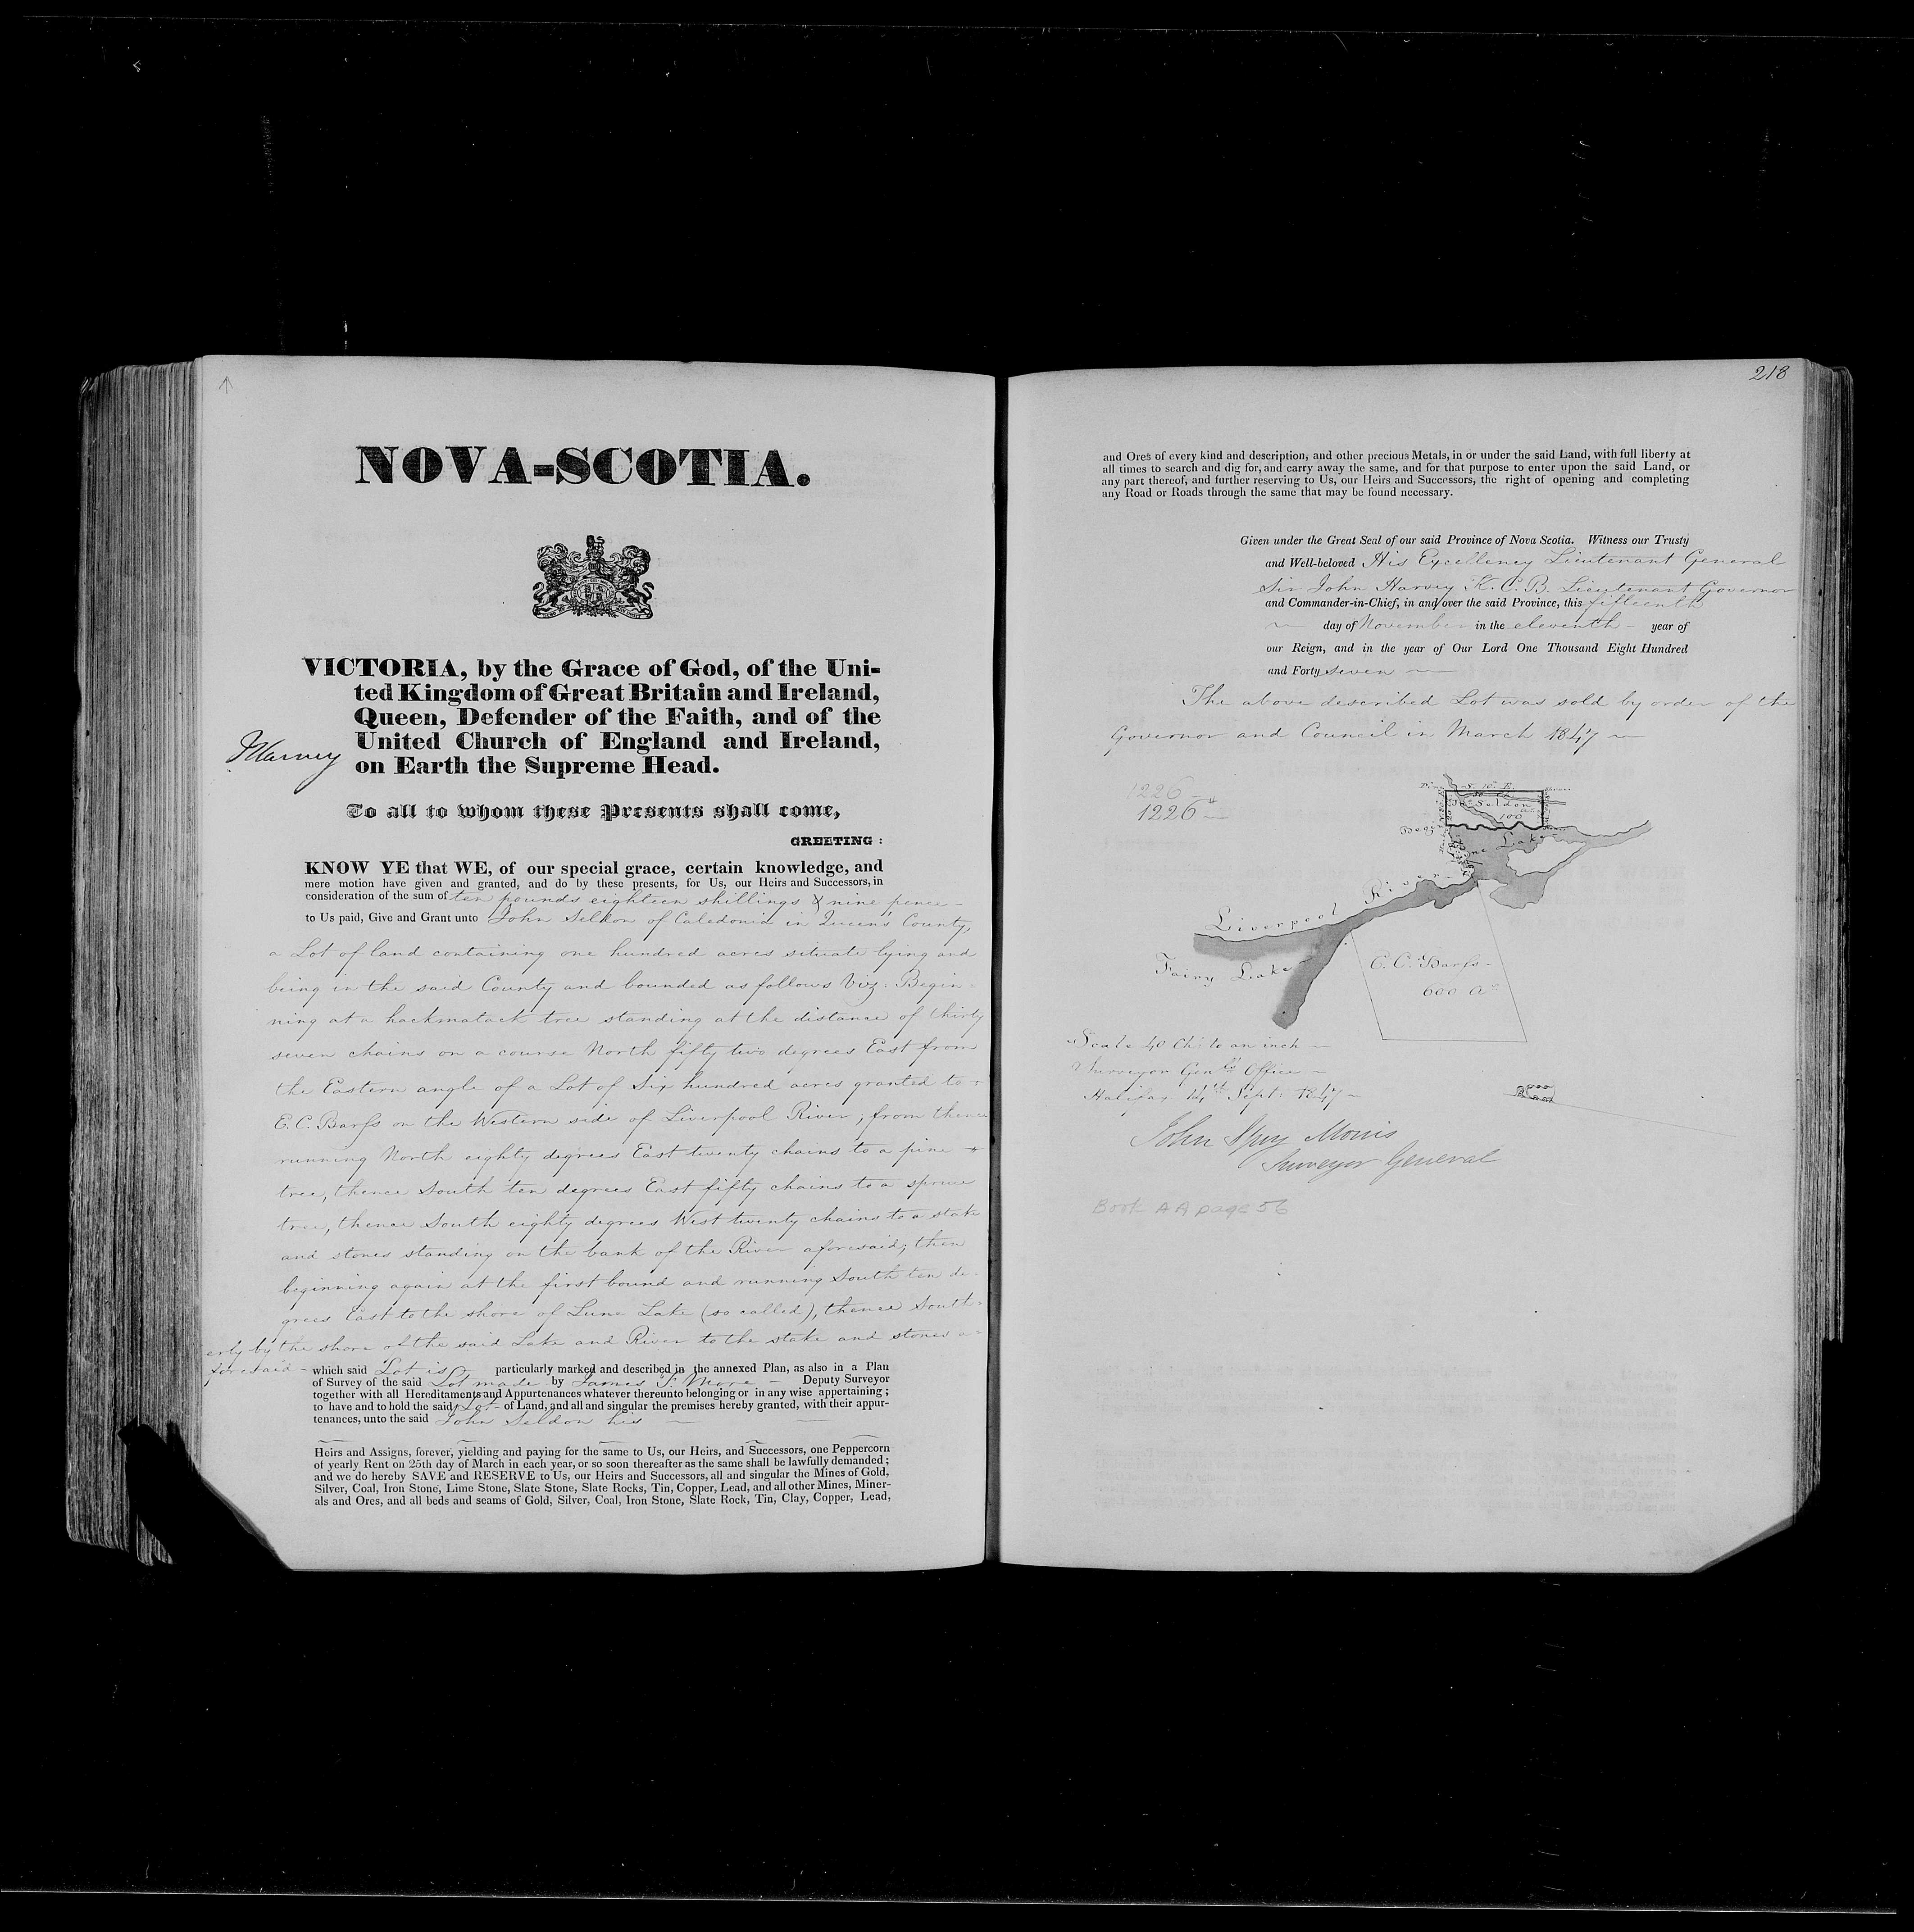 NOVA-SCOTIA.
VICTORIA, by the Grace of God, of the Uni-
ted Kingdom of Great Britain and Ireland,
Queen, Defender of the Faith, and of the
United Church of England and Ireland,
on Earth the Supreme Head.
JHarvey
To all to whom these Presents shall come,
GREETING :
KNOW YE that WE, of our special grace, certain knowledge, and
mere motion have given and granted, and do by these presents, for Us, our Heirs and Successors, in
consideration of the sum of ten pounds eighteen shillings & nine pence
to Us paid, Give and Grant unto John Seldon of Caledonia in Queen's County,
a Lot of land containing one hundred acres situate lying and
being in the said County and bounded as follows Viz: Begin-
ning at a hackmatack tree standing at the distance of thirty
seven chains on a course North fifty two degrees East from
the Eastern angle of a Lot of Six hundred acres granted to
E. C. Barss on the Western side of Liverpool River; from thence
running North eighty degrees East twenty chains to a pine
tree, thence South ten degrees East fifty chains to a spruce
tree, thence South eighty degrees West twenty chains to a stake
and stones standing on the bank of the River aforesaid; then
beginning again at the first bound and running South ten de-
grees East to the shore of Lune Lake (so called), thence South-
erly by the shore of the said Lake and River to the stake and stones a-
foresaid - which said Lot is particularly marked and described in the annexed Plan, as also in a Plan
of Survey of the said Lot made by James P. More - Deputy Surveyor
together with all Hereditaments and Appurtenances whatever thereunto belonging or in any wise appertaining ;
to have and to hold the said Lot - of Land, and all and singular the premises hereby granted, with their appur-
tenances, unto the said John Seldon his
Heirs and Assigns, forever, yielding and paying for the same to Us, our Heirs, and Successors, one Peppercorn
of yearly Rent on 25th day of March in each year, or so soon thereafter as the same shall be lawfully demanded ;
and we do hereby SAVE and RESERVE to Us, our Heirs and Successors, all and singular the Mines of Gold,
Silver, Coal, Iron Stone, Lime Stone, Slate Stone, Slate Rocks, Tin, Copper, Lead, and all other Mines, Miner-
als and Ores, and all beds and seams of Gold, Silver, Coal, Iron Stone, Slate Rock, Tin, Clay, Copper, Lead,
218
and Ores of every kind and description, and other precious Metals, in or under the said Land, with full liberty at
all times to search and dig for, and carry away the same, and for that purpose to enter upon the said Land, or
any part thereof, and further reserving to Us, our Heirs and Successors, the right of opening and completing
any Road or Roads through the same that may be found necessary.
Given under the Great Seal of our said Province of Nova Scotia. Witness our Trusty
and Well-beloved His Excellency Lieutenant General
Sir John Harvey K. C. B. Lieutenant Governor
and Commander-in-Chief, in and over the said Province, this fifteenth
day of November in the eleventh - year of
our Reign, and in the year of Our Lord One Thousand Eight Hundred
and Forty seven
The above described Lot was sold by order of the
Governor and Council in March 1847
1226
1226
S. 10 E.
Jno Seldon
100
Beg
Lune Lake
Liverpool River
Fairy Lake
E. C. Barss
600 As
Scale 40 Chs to an inch
Surveyor Genls Office
Halifax 14th Sept: 1847
John Spry Morris
Surveyor General
Book AA page 56